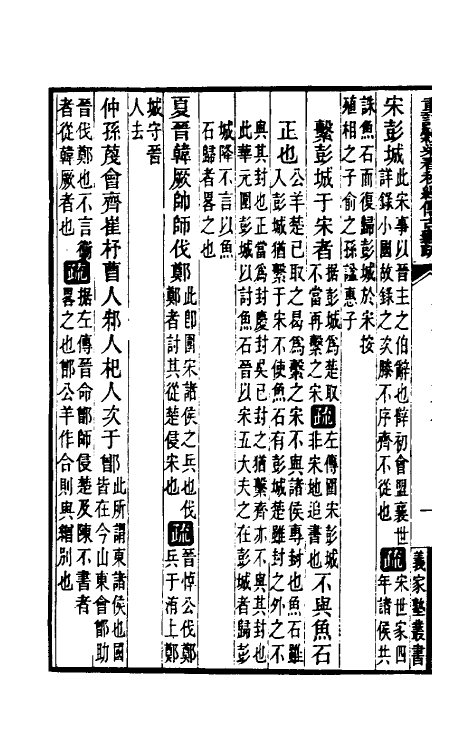 宋彭城
此宋事以晉主之伯辭也辥初會盟襄世
詳錄小國故錄之次滕不序齊不從也
疏
宋世家四
年諸侯共
誅魚石而復歸彭城於宋按
殖相之子俞之孫諡惠子
繫彭城于宋者
据彭城爲楚取
不當再繫之宋
疏
左傳圍宋彭城
非宋地追書也
不與魚石
正也
公羊楚已取之曷爲繫之宋不與諸侯專封也魚石雖
入彭城猶繫于宋不使魚石有彭城楚雖封之外之不
與其封也正當爲封慶封吳已封之猶繫齊亦不與其封也
此華元圍彭城以討魚石晉以宋五大夫之在彭城者歸彭
城降不言以魚
石歸者畧之也
夏晉韓厥帥師伐鄭
此卽圍宋諸侯之兵也伐
鄭者討其從楚侵宋也
疏
晉悼公伐鄭
兵于洧上鄭
城守晉
人去
仲孫蔑會齊崔杼曹人邾人杞人次于鄫
此所謂東諸侯也國
皆在今山東會鄫助
晉伐鄭也不言衛
者從韓厥者也
疏
据左傳晉命鄫師侵楚及陳不書者
畧之也鄫公羊作合則與繒別也
義家塾叢書